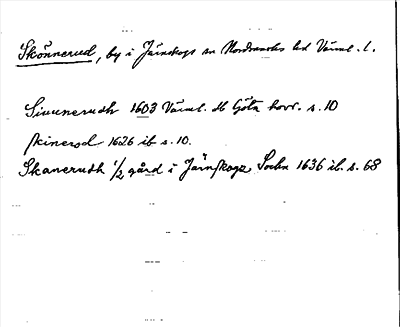 Skönnerud, by i Järnskogs sn Nordmarks hd Värml. l.
Simmerudh 1603 Värml. db Göta hovr. s. 10
skinerod 1626 ib s. 10.
Skanerudh 1/2 gård i Järnskoga Sochn 1636 ib. s. 68